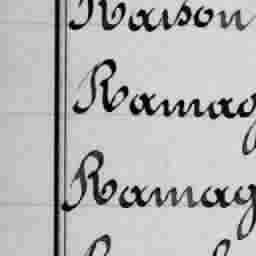 Raison
Ramag
Ramag